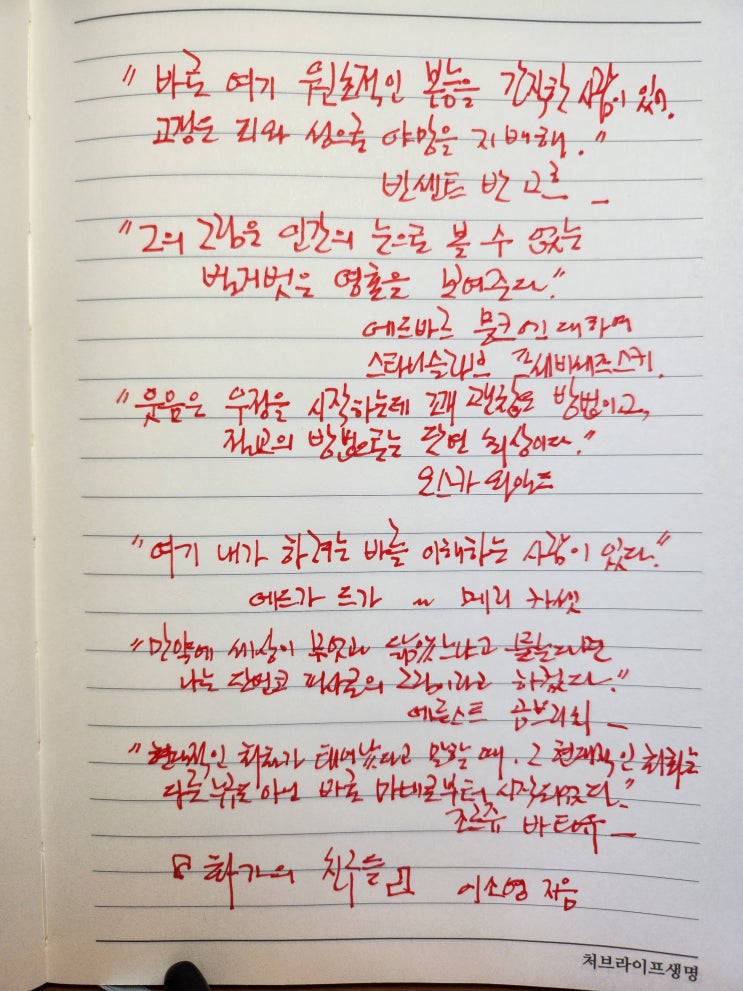 " 바로 여기 원초적인 본능을 간직한 사람이 있어.
고갱은 피와 성으로 야망을 지배해."
빈센트 반 고흐 _
"그의 그림은 인간의 눈으로 볼 수 없는
벌거벗은 영혼을 보여준다."
에드바르 뭉크에 대하여
스타니슬라브 프셰비셰프스키.
"웃음은 우정을 시작하는데 꽤 괜찮은 방법이고,
절교의 방법으로는 단연 최상이다."
오스카 와일드
"여기 내가 하려는 바를 이해하는 사람이 있다."
에드가 드가 ~ 메리 카셋
"만약에 세상이 무엇과 닮았느냐고 묻는다면
나는 단언코 피사로의 그림이라고 하겠다."
에른스트 곰브리치 _
"현대적인 회화가 태어났다고 말할 때. 그 현대적인 회화는
다른 누구도 아닌 바로 마네로부터 시작되었다."
조르주 바타유 _
『화가의 친구들』 이소영 지음
처브라이프생명